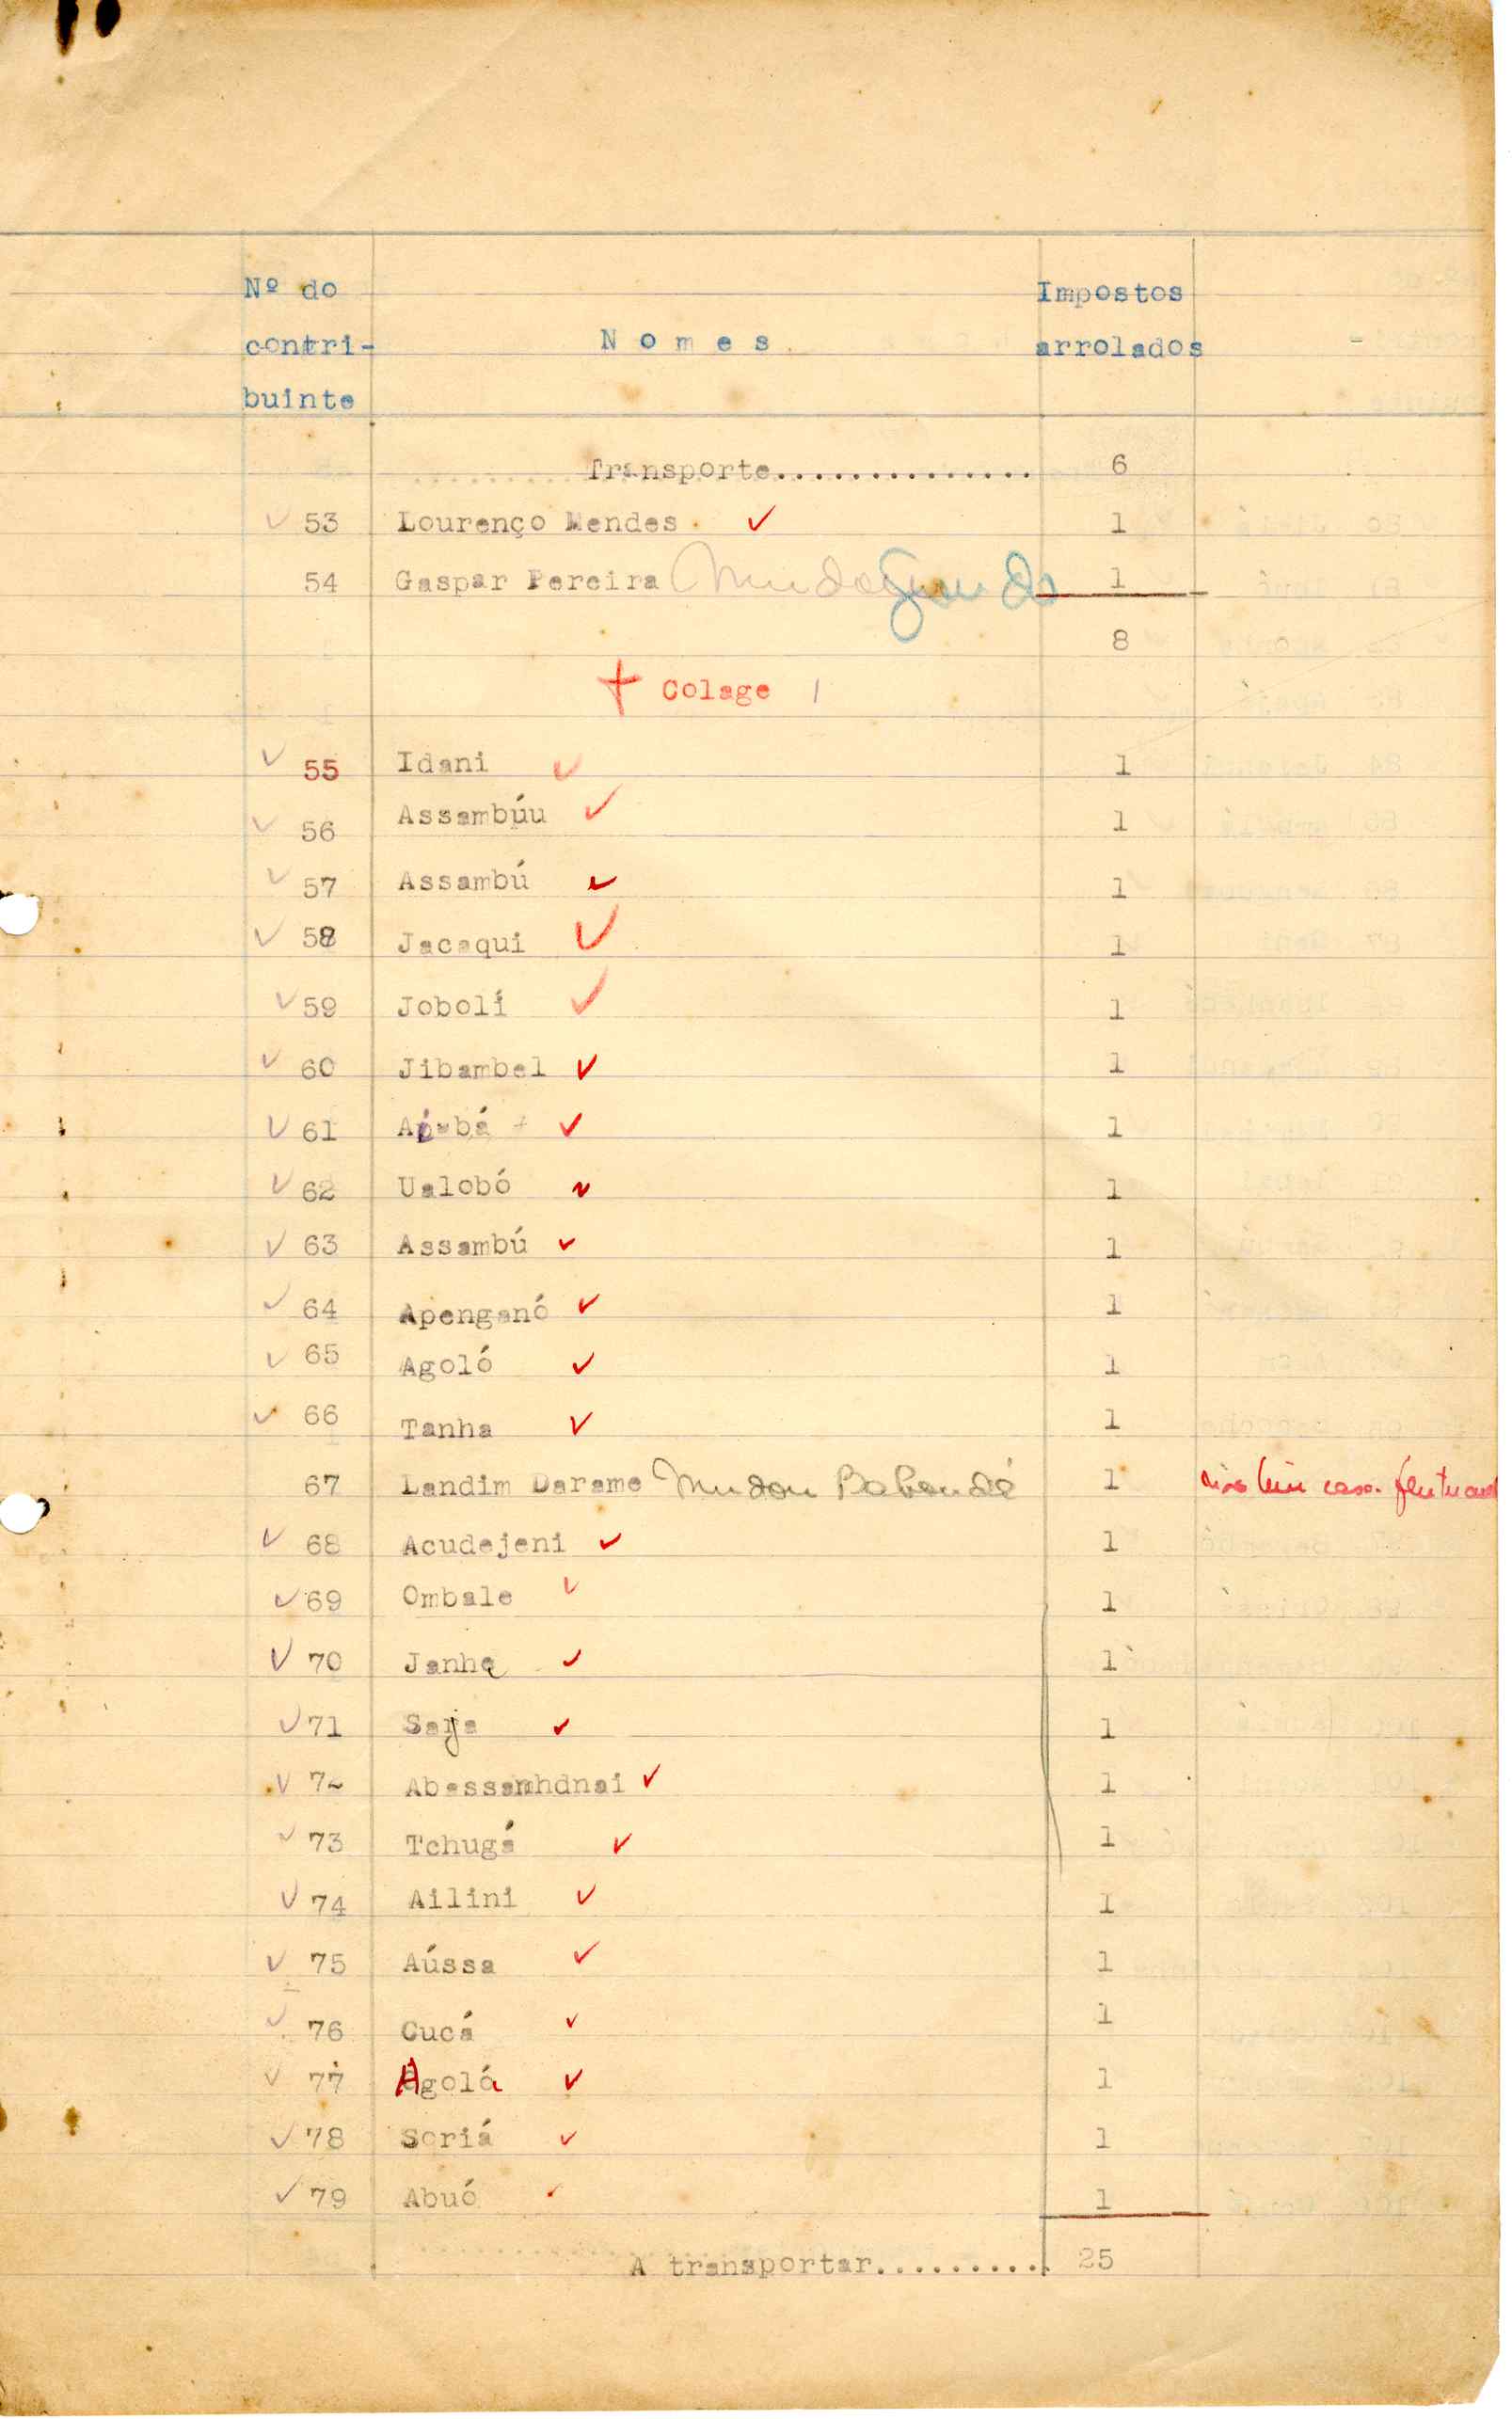 Nº do
contri-
buinte
Nomes
Impostos
arrolados
Transporte............... 6
✓ 53 Lourenço Mendes ✓ 1
54 Gaspar Pereira 1
8
+ Colage
✓ 55 Idani ✓ 1
✓ 56 Assambúu ✓ 1
✓ 57 Assambú ✓ 1
✓ 58 Jacaqui ✓ 1
✓ 59 Jobolí ✓ 1
✓ 60 Jibambel ✓ 1
✓ 61 ✓ 1
✓ 62 Ualobó ✓ 1
✓ 63 Assambú ✓ 1
✓ 64 Apenganó ✓ 1
✓ 65 Agoló ✓ 1
✓ 66 Tanha ✓ 1
67 Landim Darame Mudou 1 não tem casa.
✓ 68 Acudejeni ✓ 1
✓ 69 Ombale ✓ 1
✓ 70 Janha ✓ 1
✓ 71 Saja ✓ 1
✓ 72 ✓ 1
✓ 73 Tchugá ✓ 1
✓ 74 Ailini ✓ 1
✓ 75 Aússa ✓ 1
✓ 76 Cucá ✓ 1
✓ 77 Agolá ✓ 1
✓ 78 Soriá ✓ 1
✓ 79 Abuó ✓ 1
A transportar.......... 25